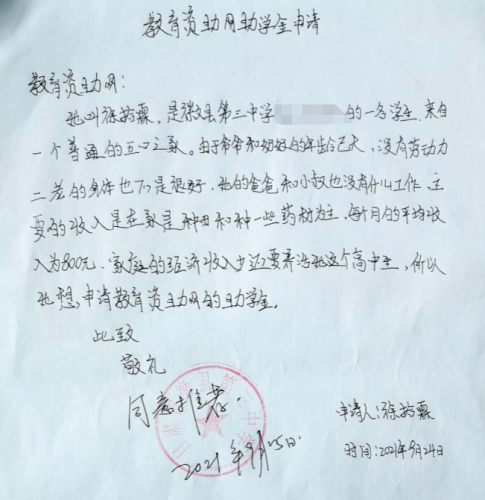 教育资助网助学金申请
教育资助网：
我叫徐 霖，是徽县第三中学 的一名学生，来自
一个普通的五口之家。由于爷爷和奶奶的年龄已大，没有劳动力
二老的身体也不是很好，我的爸爸和小叔也没有什么工作，主
要的收入是在家是种田和种一些药材为主，每个月的平均收
入为800元，家庭的经济收入少还要养活我这个高中生，所以
我想，申请教育资助网的助学金。
此致
敬礼
同意推荐。
2021年9月25日
申请人：徐 霖
时间：2021年9月24日